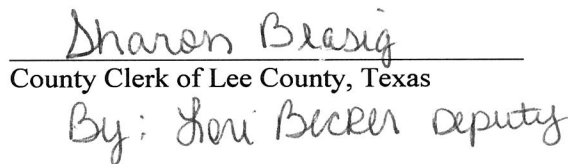 Sharon Blasig
County Clerk of Lee County, Texas
By: Lori Becker Deputy